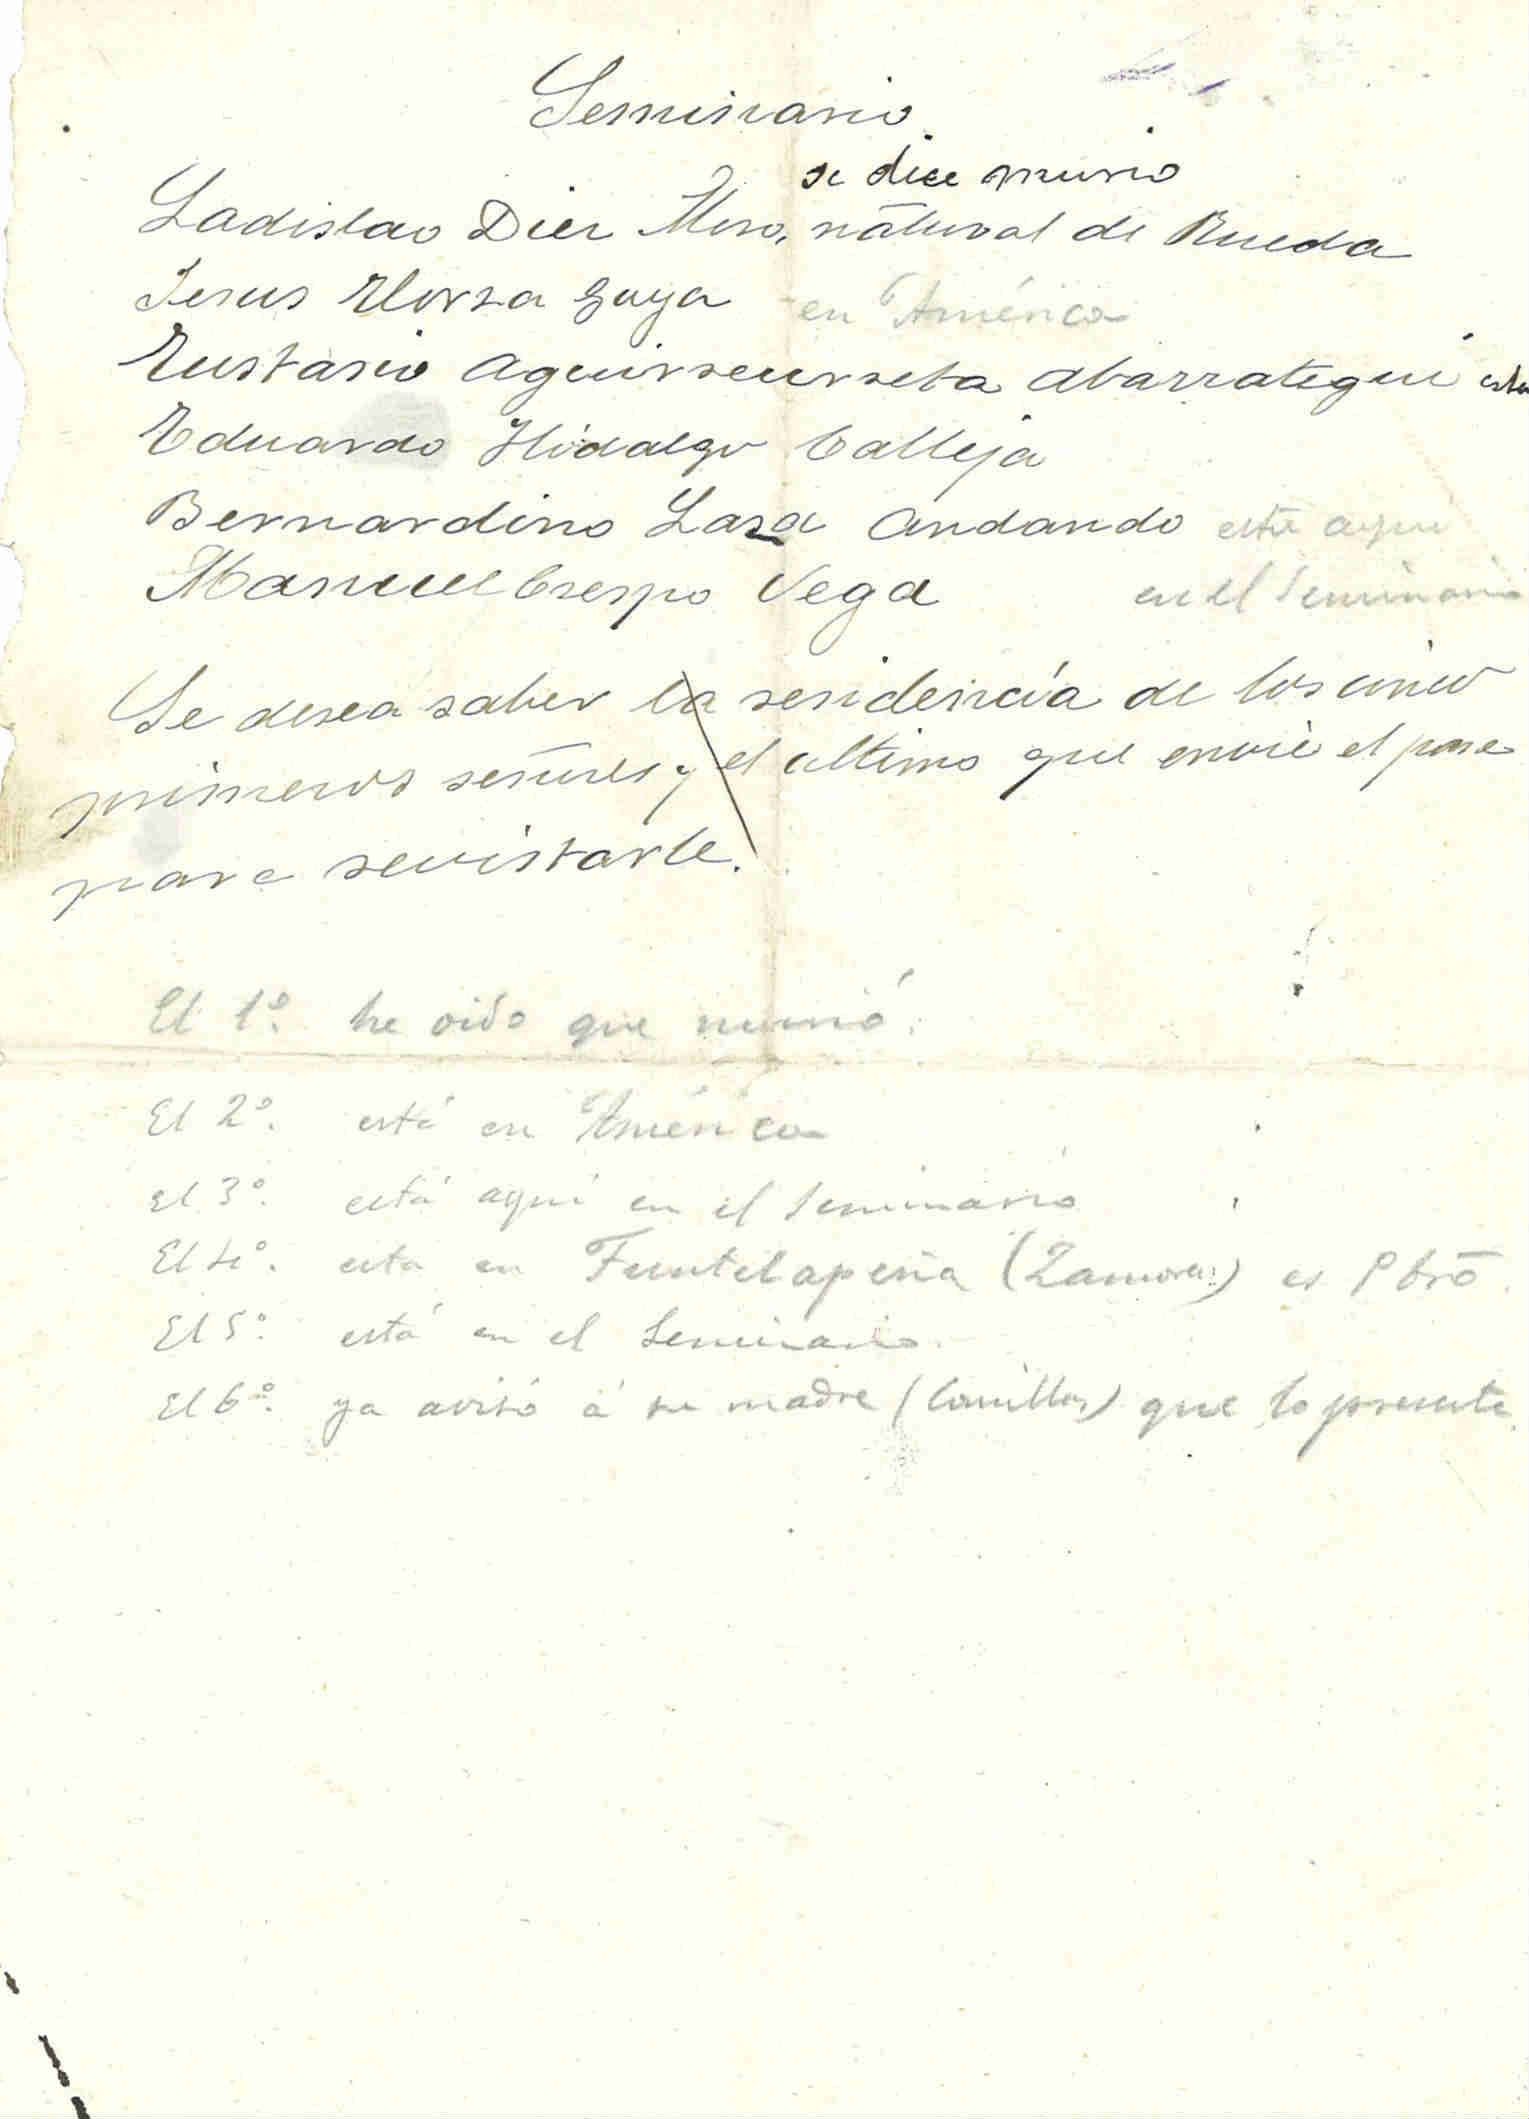 Seminario
se dice murio
Ladislao Diez Moro, natural de Rueda
Jesus Elorza Goya en América
Eustasio Aguirreurreta Abarrategui esta
Eduardo Hidalgo Calleja
Bernardino Lasa Andando está aqui
Manuel Crespo Vega en el Seminario
Se desea saber la residencia de los cinco
primeros señores y el ultimo que envie el pase
para revistarle.
El 1º. he oido que murió.
El 2º. está en América
El 3º. está aquí en el Seminario
El 4º. esta en Fuentelapeña (Zamora) es Pbrō.
El 5º. está en el Seminario.
El 6º. ya avisó á su madre (Comillas) que lo presente.